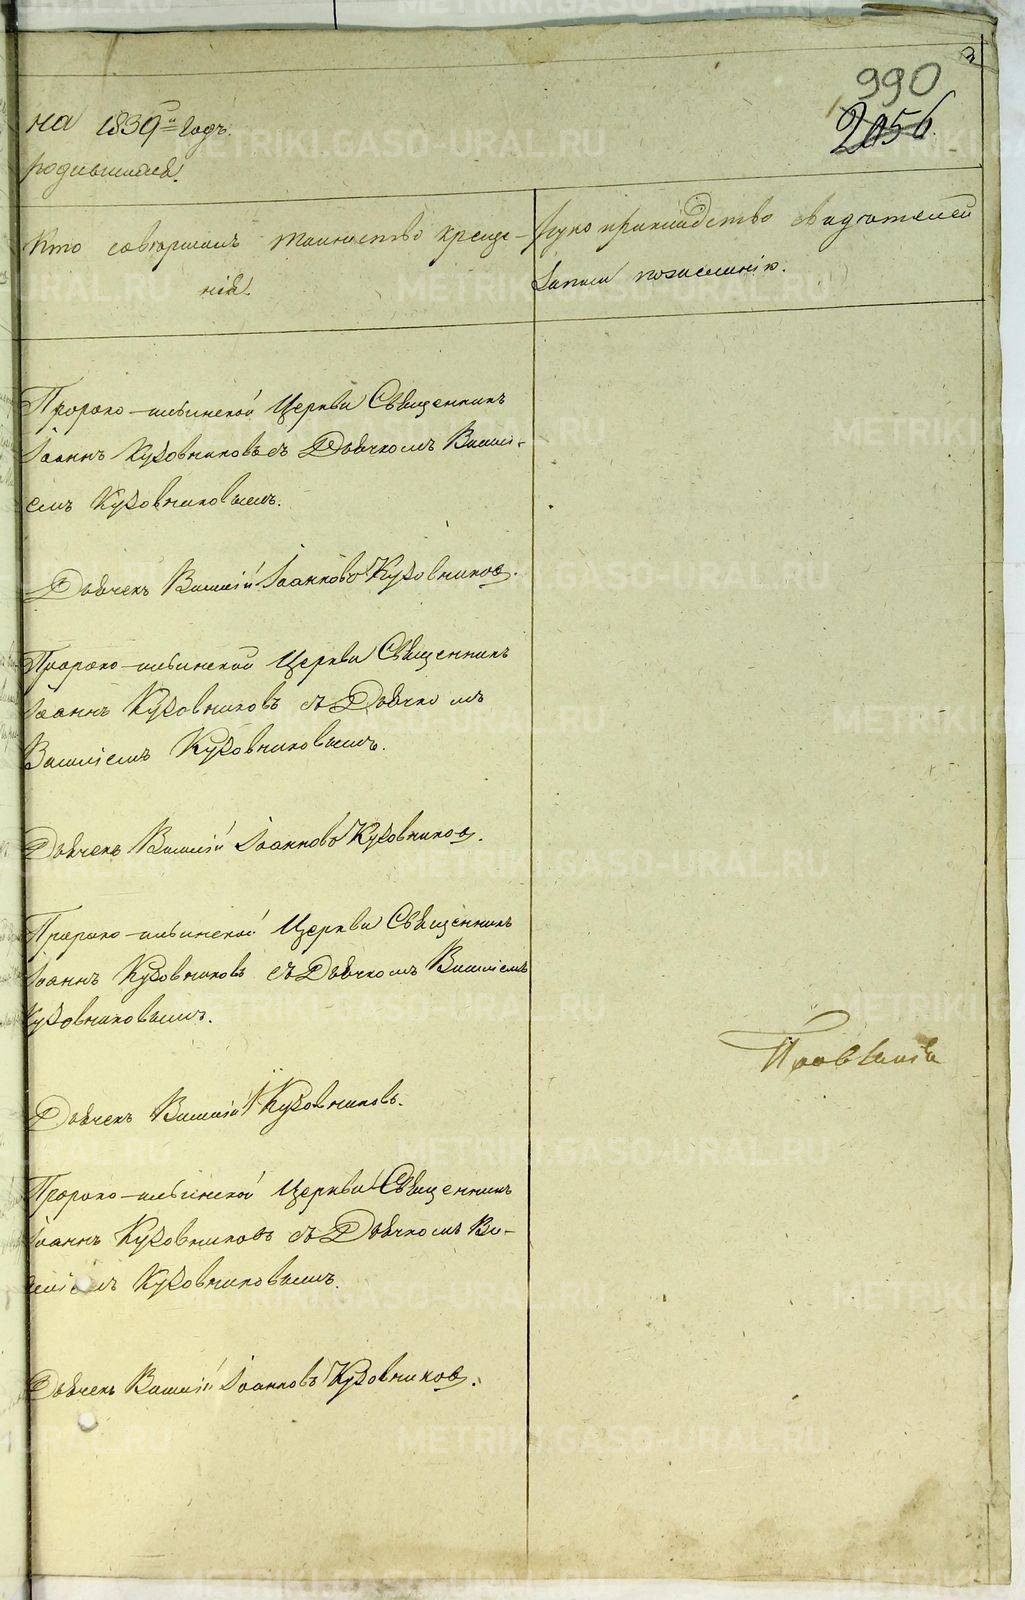 3
990
2056
на 1839й Годъ.
родившихся.
Кто совершалъ таинство креще-
нія.
Рукоприкладство свидѣтелей
записи по желанію.
Пророко-ильинской Церкви Священникъ
Іоаннъ Кузовниковъ съ Дьячкомъ Васил-
емъ Кузовниковымъ.
Дьячекъ Василій Іоанновъ Кузовниковъ.
Пророко-ильинской Церкви Священникъ
Іоаннъ Кузовниковъ съ Дьячкомъ
Василіемъ Кузовниковымъ.
Дьячекъ Василій Іоанновъ Кузовниковъ.
Пророко-ильинской Церкви Священникъ
Іоаннъ Кузовниковъ съ Дьячкомъ Василіемъ
Кузовниковымъ.
Дьячекъ Василій Кузовниковъ.
Пророко-ильинской Церкви Священникъ
Іоаннъ Кузовниковъ съ Дьячкомъ Ва-
силіемъ Кузовниковымъ.
Дьячекъ Василій Іоанновъ Кузовниковъ.
METRIKI.GASO-URAL.RU